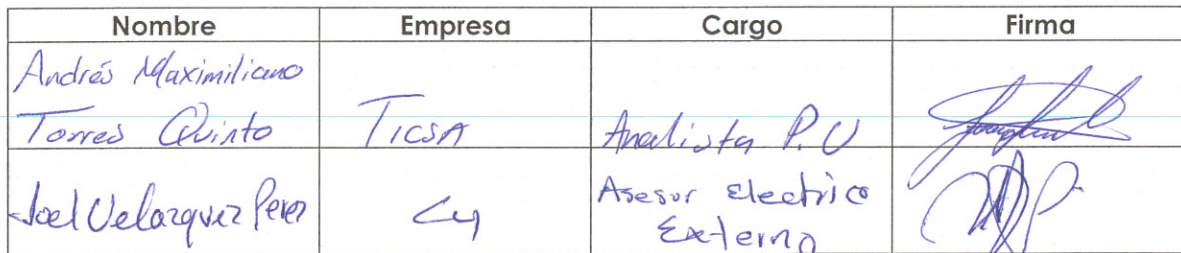 Nombre Empresa Cargo Firma
Andrés Maximiliano
Torres Quinto TICSA Analista P.U
Joel Velazquez Perez Asesor Electrico
Externo